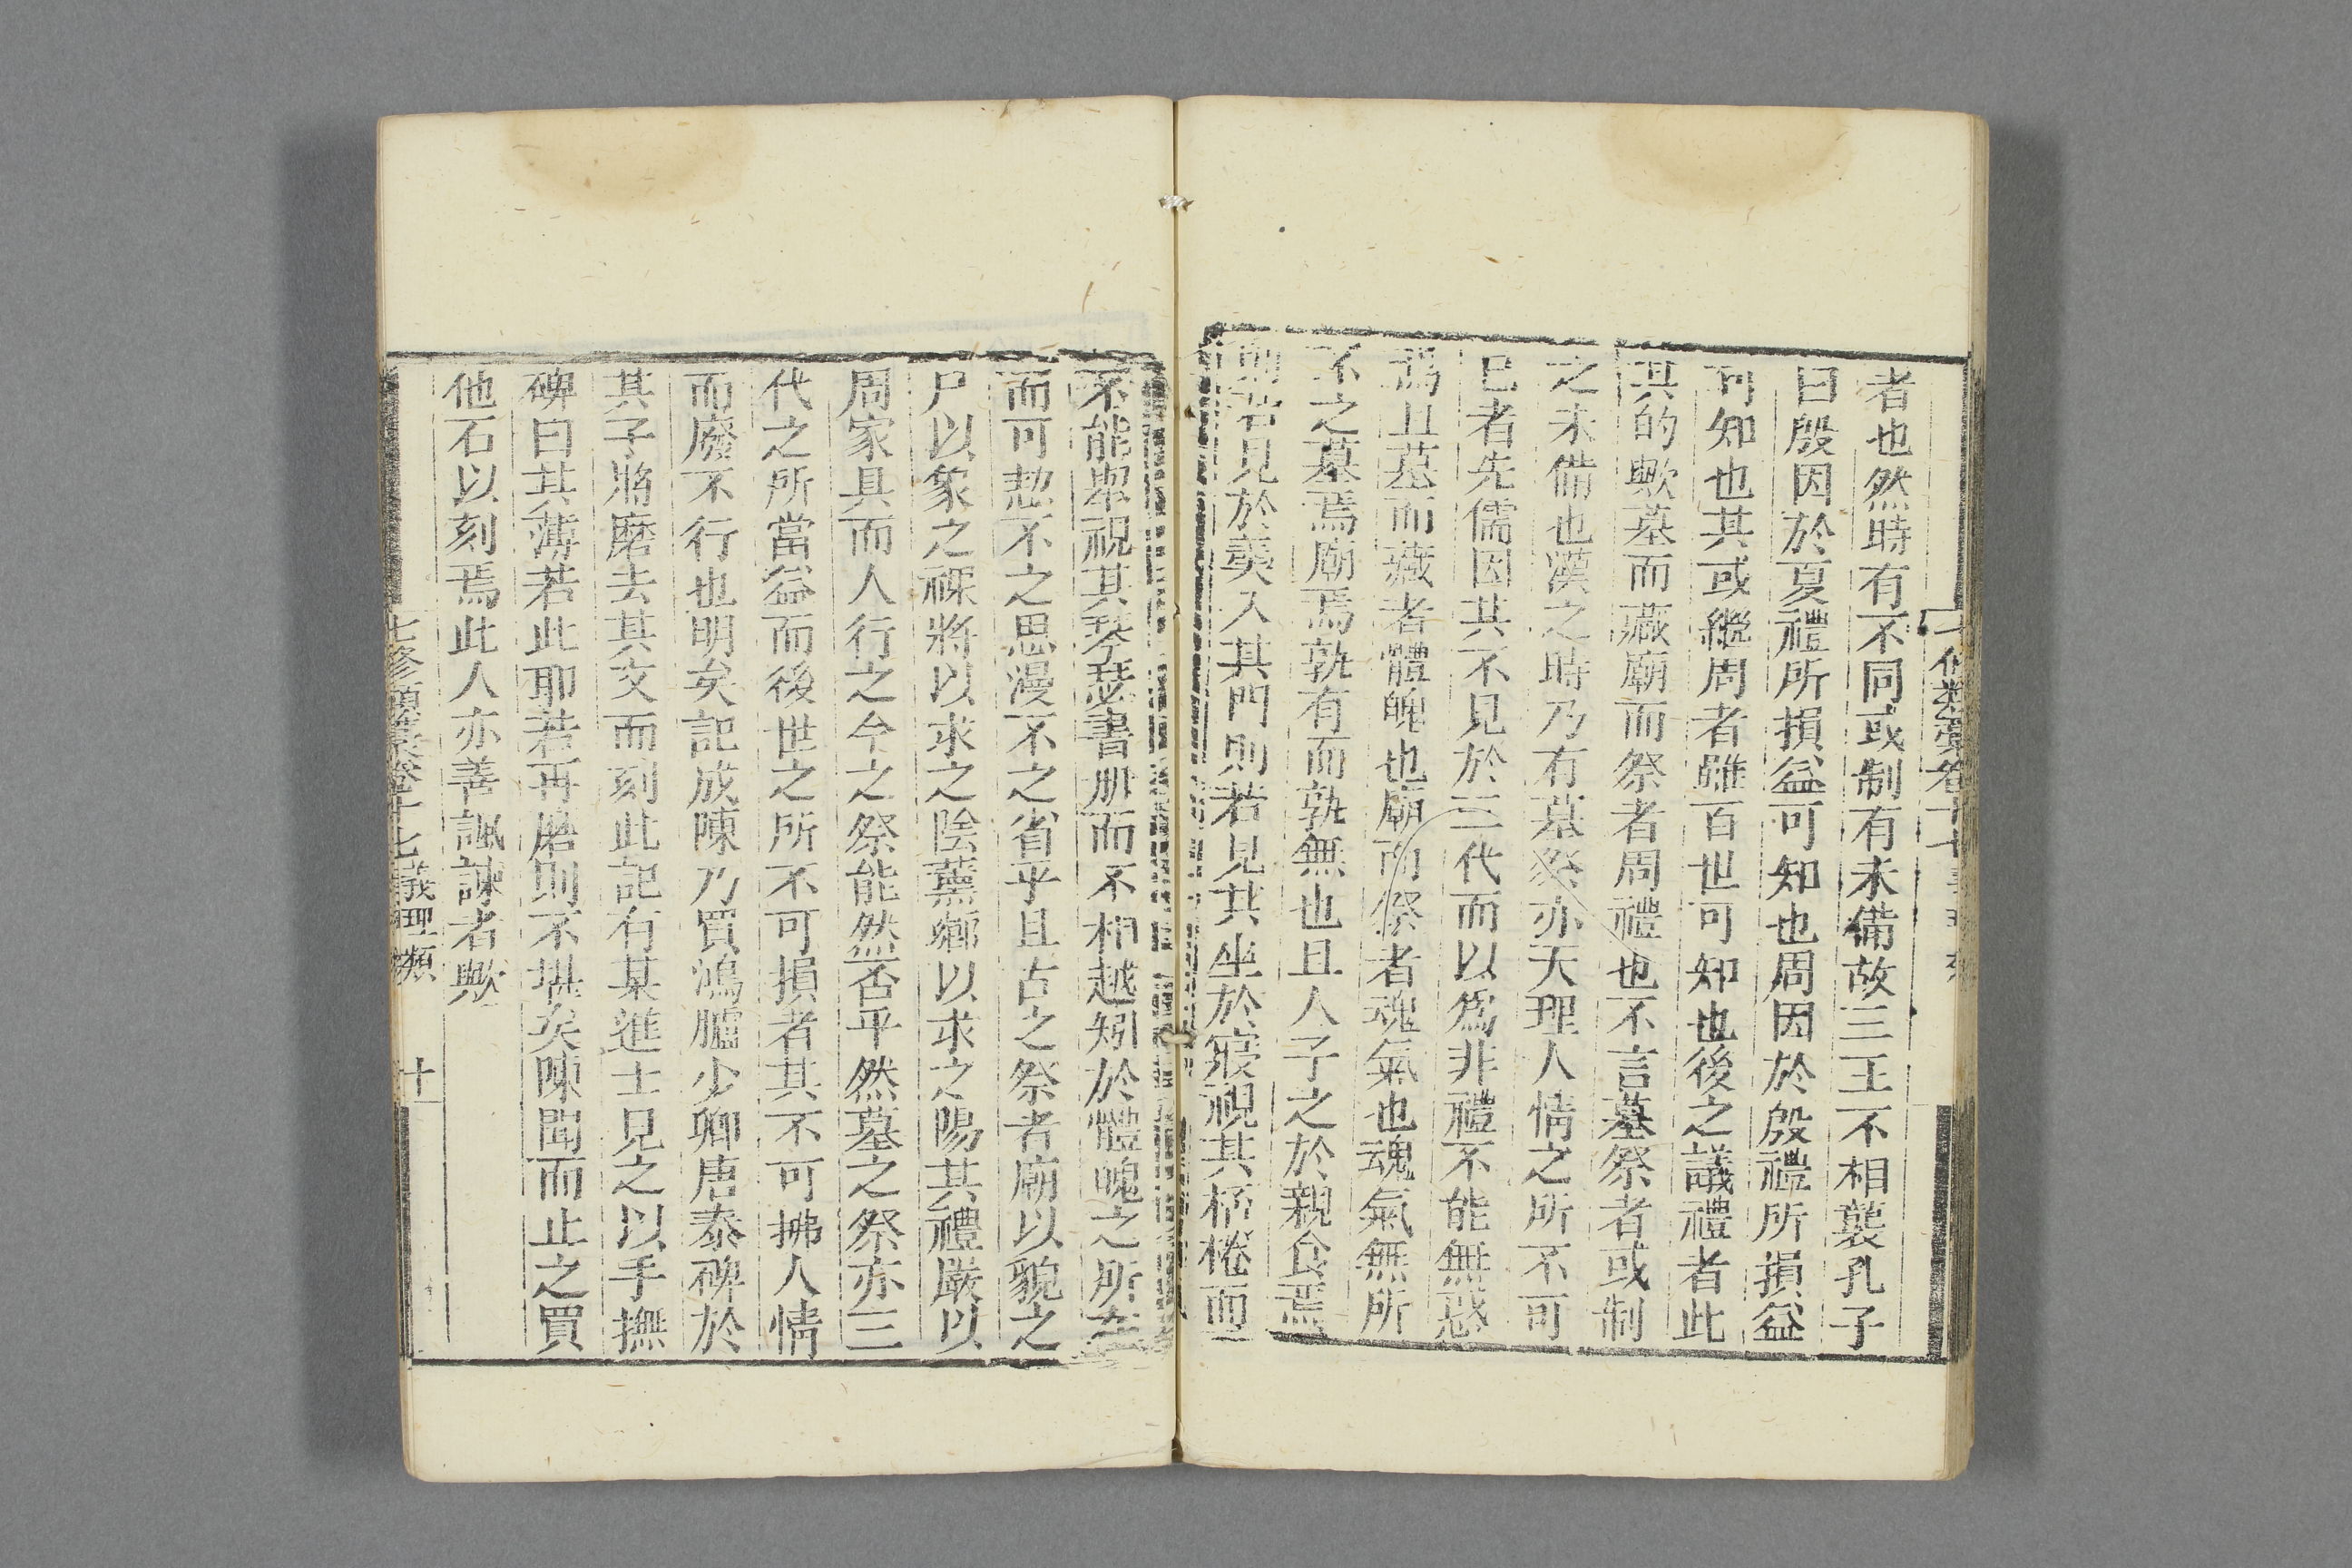 者也然時有不同或制有未備故三王不相襲孔子
曰殷因於夏禮所損益可知也周因於殷禮所損益
可知也其或繼周者雖百世可知也後之議禮者此
其的歟墓而藏廟而祭者周禮也不言墓祭者或制
之未備也漢之時乃有墓祭亦天理人情之所不可
已者先儒因其不見於三代而以爲非禮不能無惑
焉且墓而藏者體魄也廟而祭者魂氣也魂氣無所
不之墓焉廟焉孰有而孰無也且人子之於親食焉
則若見於羹入其門則若見其坐於寢視其桮棬而
不能舉視其琴瑟書册而不相越矧於體魄之所在
而可恝不之思漫不之省乎且古之祭者廟以貌之
尸以象之祼將以求之陰薰薌以求之陽其禮嚴以
周家具而人行之今之祭能然否乎然墓之祭亦三
代之所當益而後世之所不可損者其不可拂人情
而廢不行也明矣記成陳乃買鴻臚少卿唐泰碑於
其子將磨去其文而刻此記有某進士見之以手撫
碑曰其薄若此耶若再磨則不堪矣陳聞而止之買
他石以刻焉此人亦善諷諫者歟
七修類藁卷十七義理類
十一